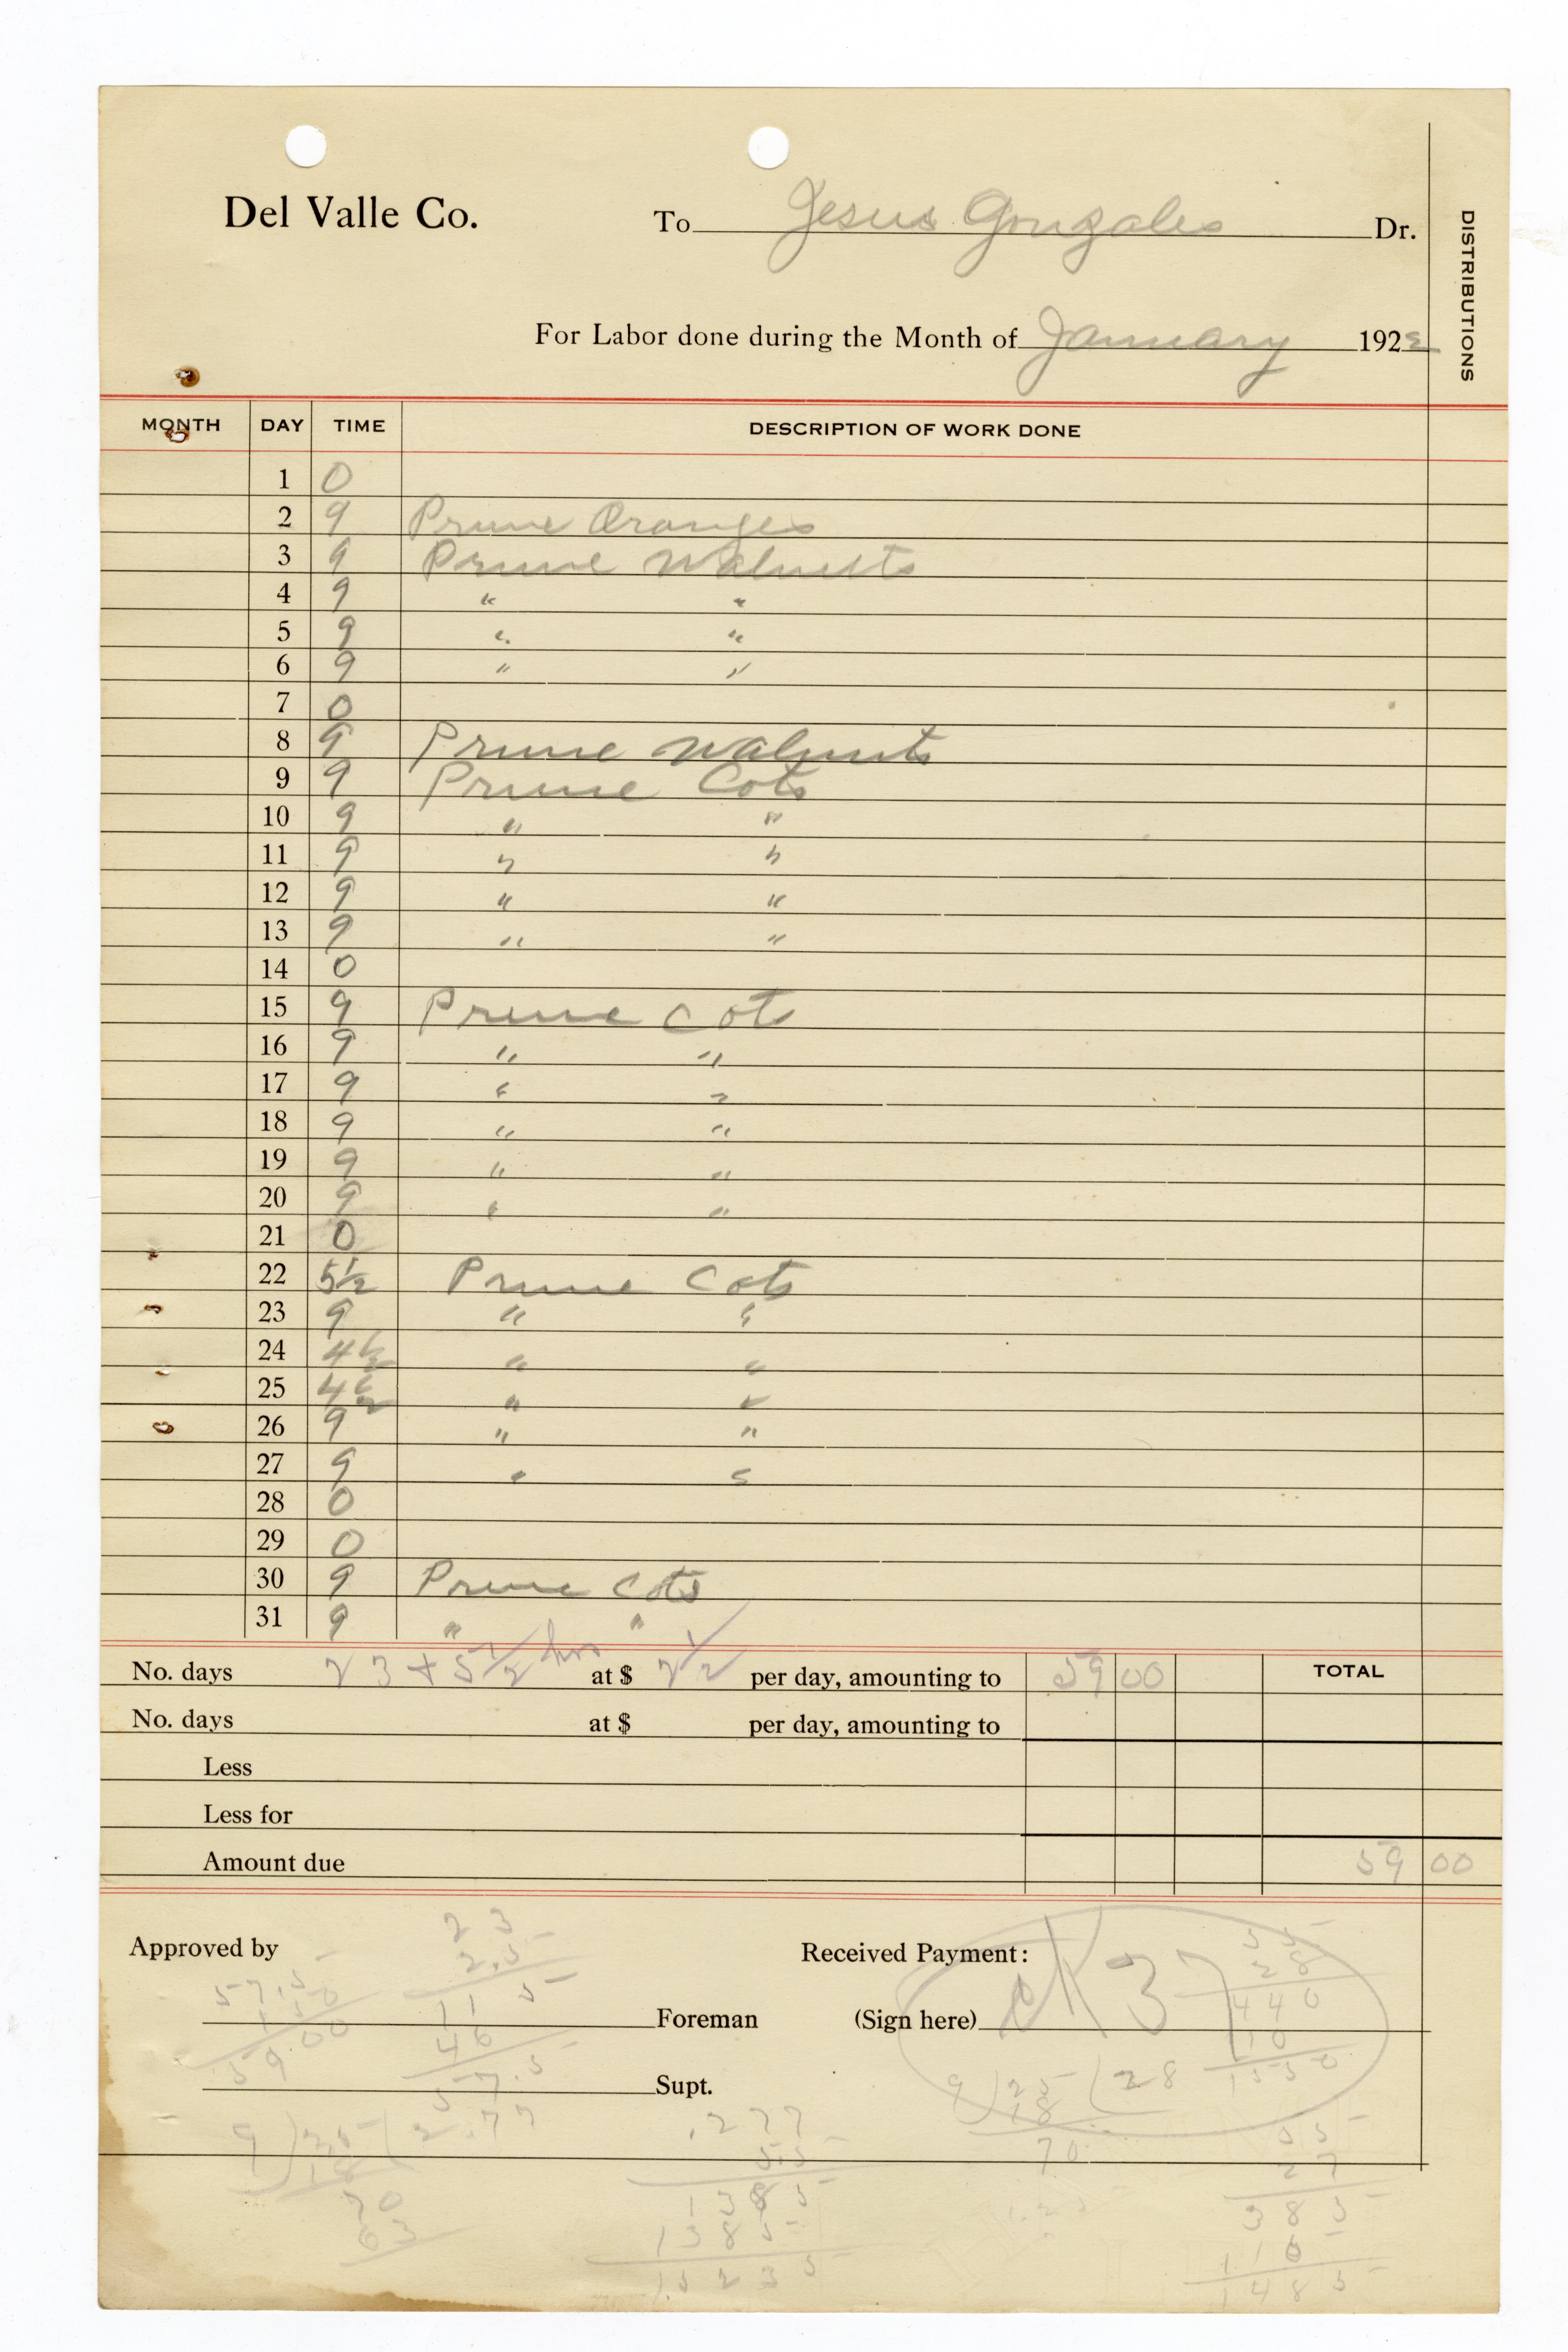 Del Valle Co. To Jesus Gonzales Dr.
DISTRIBUTIONS
For Labor done during the Month of January 1922
MONTH DAY TIME DESCRIPTION OF WORK DONE
1 0
2 9 Prune Oranges
3 9 Prune Walnutts
4 9 " "
5 9 " "
6 9 " "
7 0
8 9 Prune Walnuts
9 9 Prune Cots
10 9 " "
11 9 " "
12 9 " "
13 9 " "
14 0
15 9 Prune Cots
16 9 " "
17 9 " "
18 9 " "
19 9 " "
20 9 " "
21 0
22 5 1/2 Prune Cots
23 9 " "
24 4 1/2 " "
25 4 1/2 " "
26 9 " "
27 9 " "
28 0
29 0
30 9 Prune Cots
31 9 " "
No. days 23 + 5 1/2 hrs at $ 2 1/2 per day, amounting to 59 00 TOTAL
No. days at $ per day, amounting to
Less
Less for
Amount due 59 00
Approved by
Received Payment:
Foreman
(Sign here)
Supt.
23
2.5
11 5
46
57.5
57.50
1 50
59.00
37
55
28
440
110
1550
9)25(28
18
70
9)25(2.77
18
70
63
.277
5.5
1385
1385
1.5235
55
27
385
110
1485